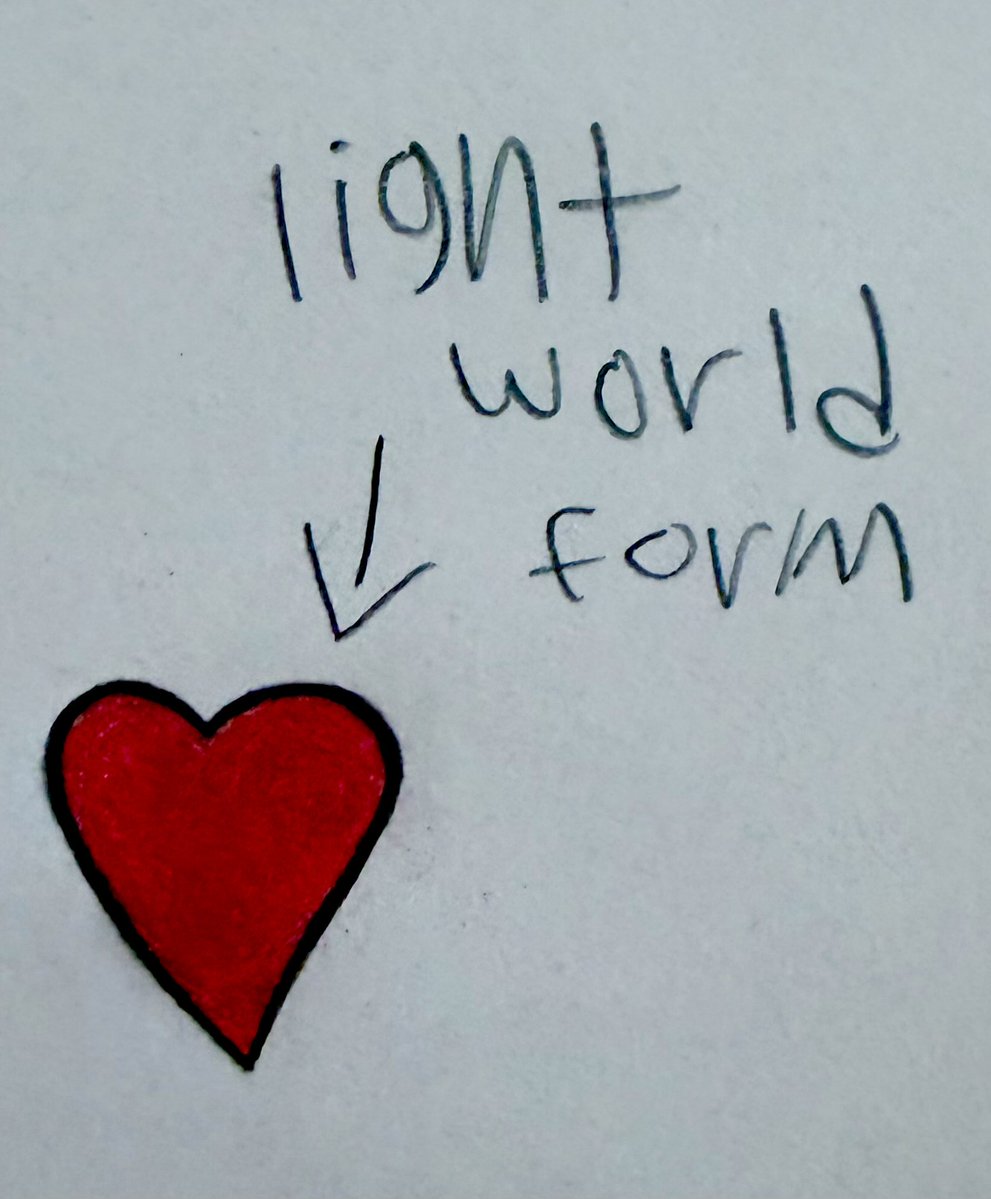 light
world
form